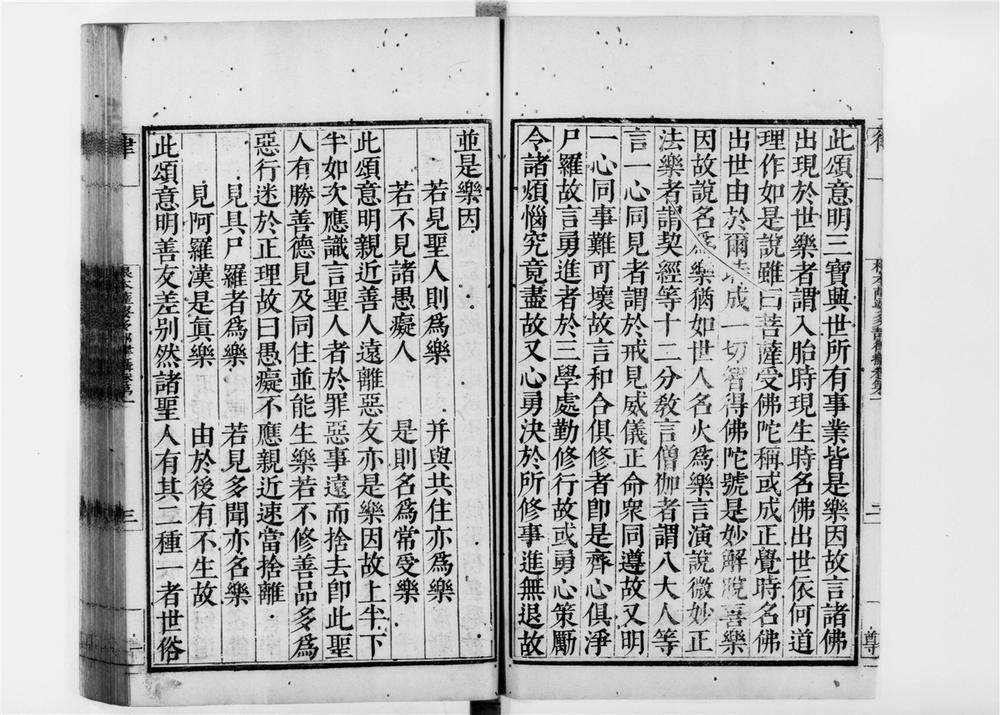 此頌意明三寶與世所有事業皆是樂因故言諸佛
出現於世樂者謂入胎時現生時名佛出世依何道
理作如是說雖曰菩薩受佛陀稱或成正覺時名佛
出世由於爾時成一切智得佛陀號是妙解脫喜樂
因故說名為樂猶如世人名火為樂言演說微妙正
法樂者謂契經等十二分教言僧伽者謂八大人等
言一心同見者謂於戒見威儀正命衆同遵故又明
一心同事難可壞故言和合俱修者卽是齊心俱淨
尸羅故言勇進者於三學處勤修行故或勇心策勵
令諸煩惱究竟盡故又心勇決於所修事進無退故
三
尊
並是樂因
若見聖人則為樂　并與共住亦為樂
若不見諸愚癡人　是則名為常受樂
此頌意明親近善人遠離惡友亦是樂因故上半下
半如次應識言聖人者於罪惡事遠而捨去卽此聖
人有勝善德見及同住並能生樂若不修善品多為
惡行迷於正理故曰愚癡不應親近速當捨離
見具尸羅者為樂　若見多聞亦名樂
見阿羅漢是眞樂　由於後有不生故
此頌意明善友差別然諸聖人有其二種一者世俗
律
三